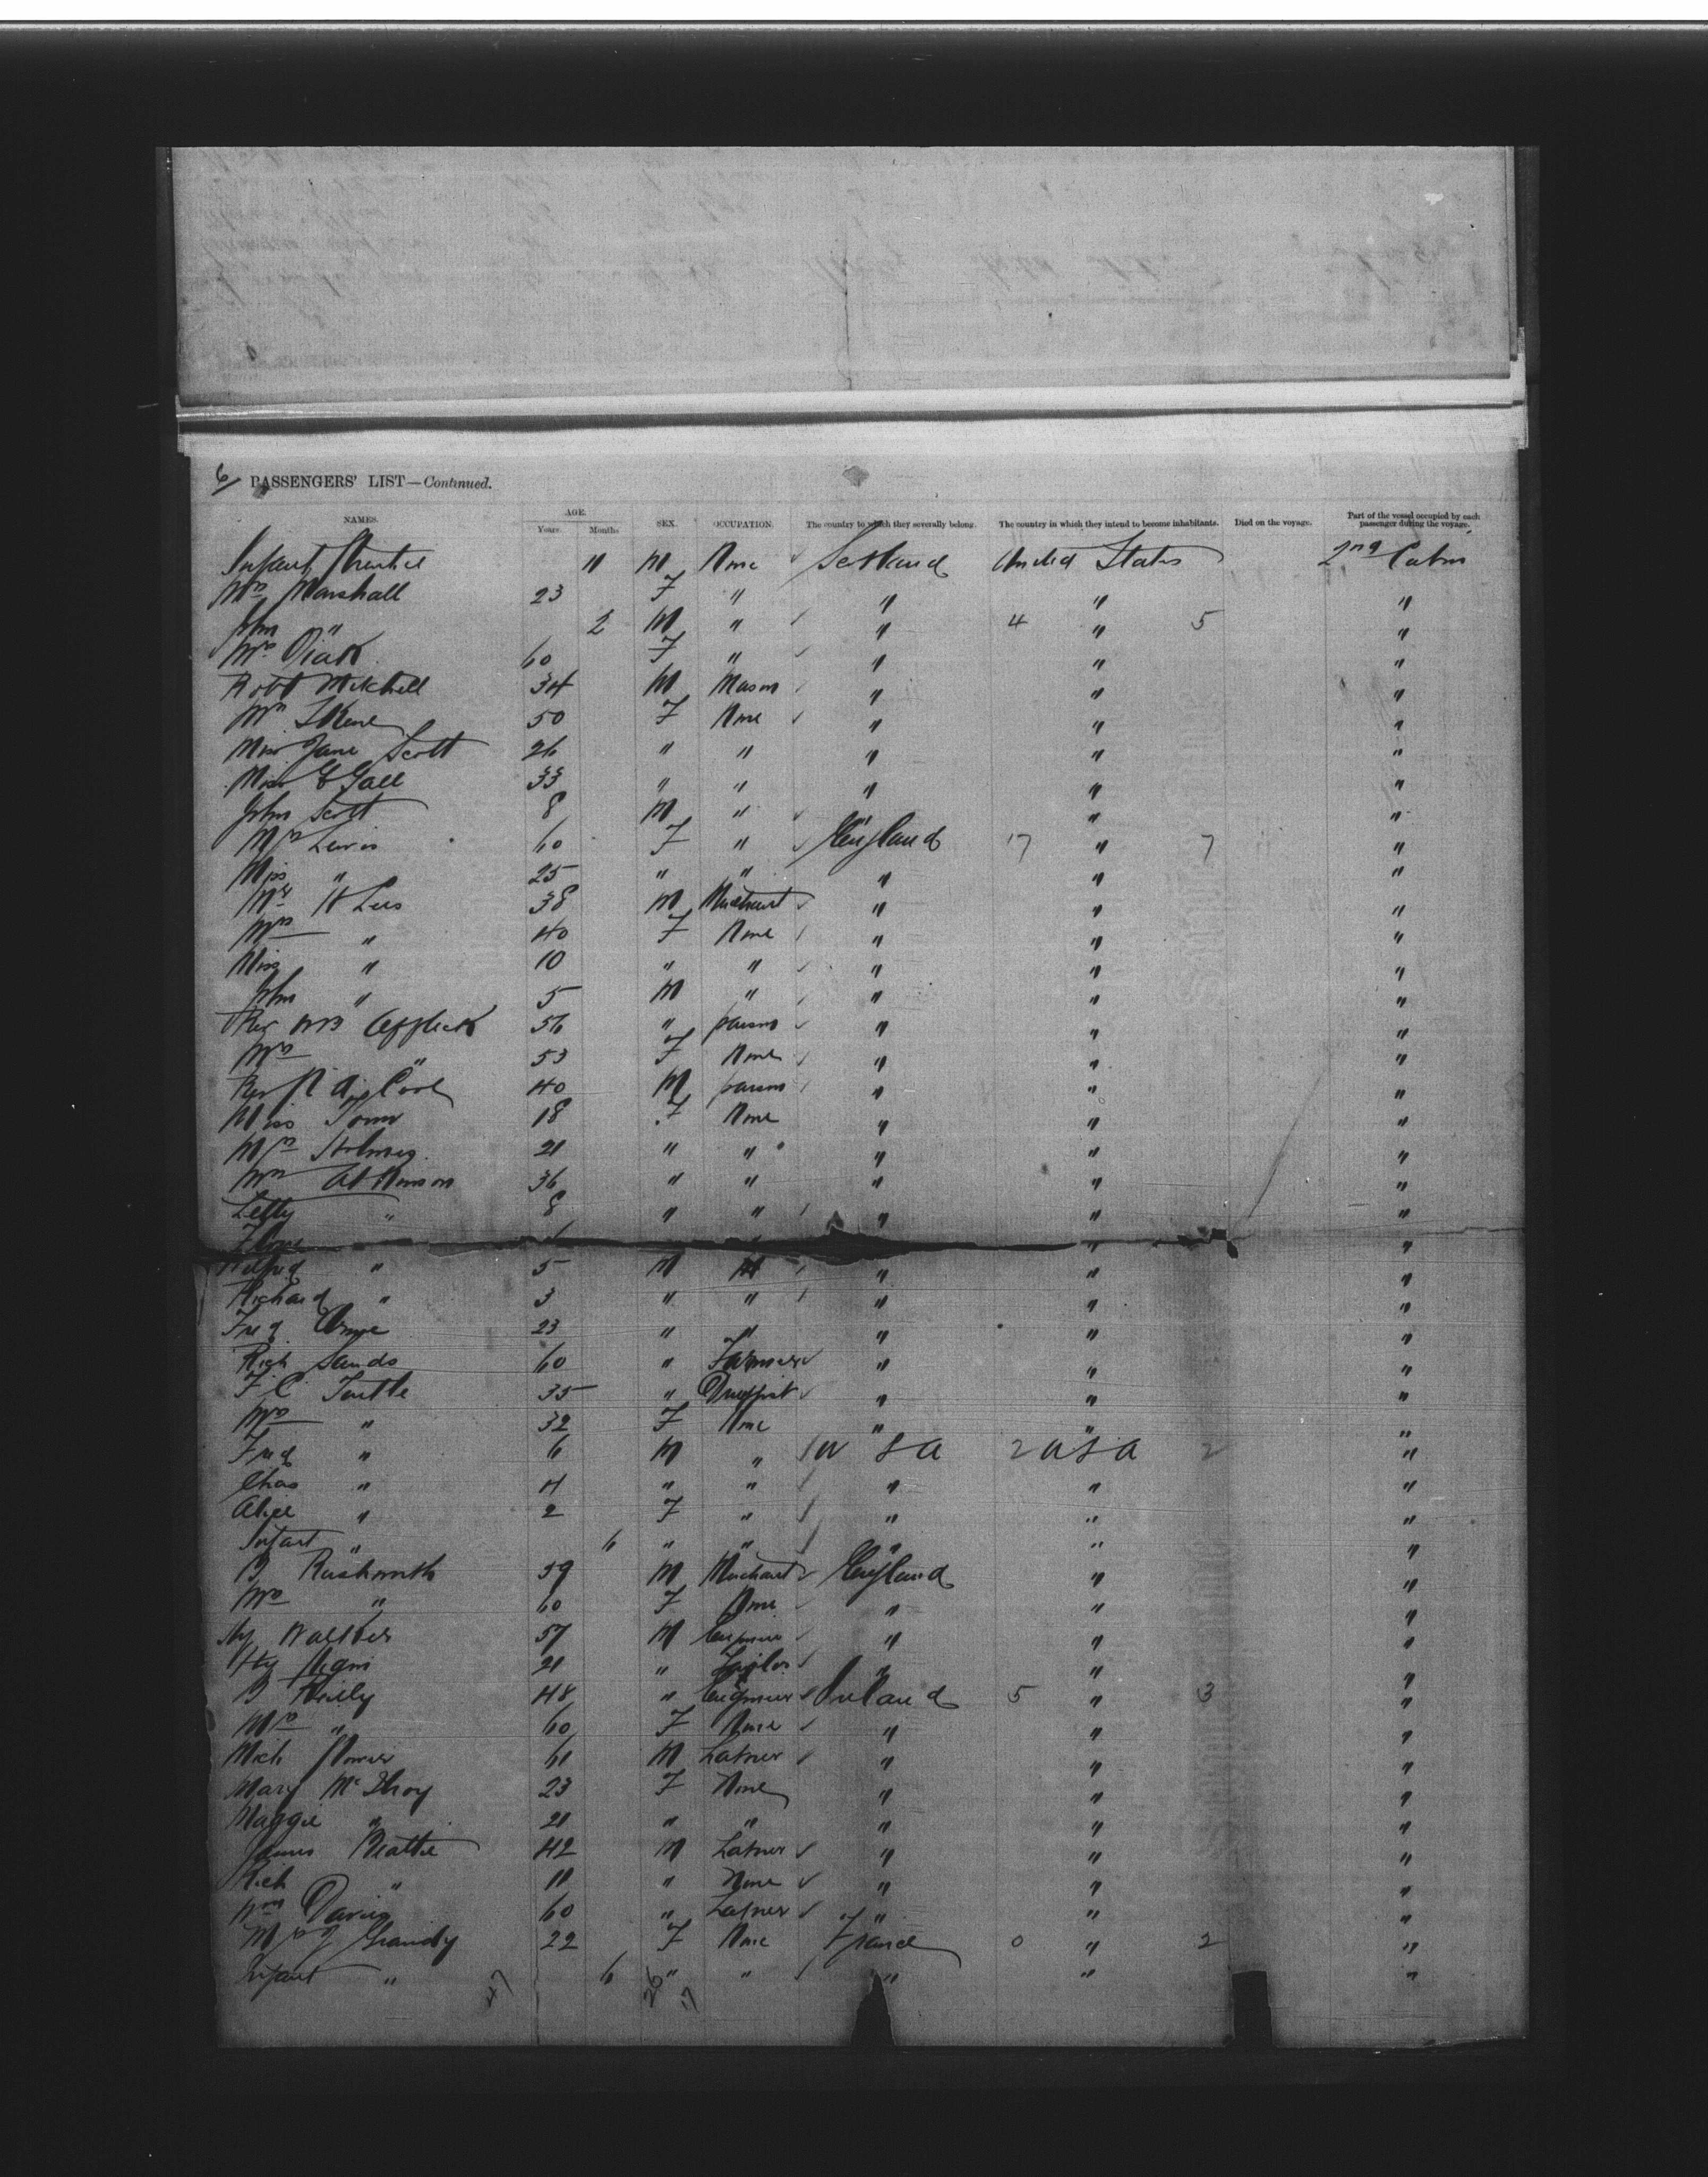 6/ PASSENGERS' LIST—Continued.
NAMES. AGE. Years. Months. SEX. OCCUPATION. The country to which they severally belong. The country in which they intend to become inhabitants. Died on the voyage. Part of the vessel occupied by each passenger during the voyage.
Infant 11 M None Scotland United States 2nd Cabin
Mrs Marshall 23 F " " " "
John " 2 M " " 4 " 5 "
Mrs 60 F " " " "
Robt Mitchell 34 M Mason " " "
Mrs Skene 50 F None " " "
Miss Jane Scott 26 " " " " "
Miss E Gall 33 " " " " "
John Scott 8 M " " " "
Mrs Lewis 60 F " England 17 " 7 "
Miss " 25 " " " " "
Mr H Lees 38 M Merchant " " "
Mrs " 40 F None " " "
Miss " 10 " " " " "
John " 5 M " " " "
Rev WB Affleck 56 " parson " " "
Mrs " 53 F None " " "
Rev 40 M parson " " "
Miss 18 F None " " "
Mrs Holmes 21 " " " " "
Mrs Atkinson 36 " " " " "
Letty " 8 " " " " "
" "
" 5 M " " " "
Richard " 3 " " " " "
Fred 23 " " " " "
Rich Sands 60 " Farmer " " "
F. C. Tuttle 35 " Druggist " " "
Mrs " 32 F None " " "
Fred " 6 M " U S A 2 U S A 2 "
Chas " 4 " " " " "
Alice " 2 F " " " "
Infant " 6 " " " " "
B Rushworth 59 M Merchant England " "
Mrs " 60 F None " " "
Hy Walker 57 M " " "
Hy 21 " Tailor " " "
B Reilly 48 " Engineer Ireland 5 " 3 "
Mrs " 60 F None " " "
Mich 61 M Labrer " " "
Mary McIlroy 23 F None " " "
Maggie " 21 " " " " "
James Beattie 42 M Labrer " " "
Rich " 11 " None " " "
Wm Davis 60 " Labrer " " "
Mrs J Grandy 22 F None France 0 " 2 "
Infant " 6 " " " " "
47 26 17